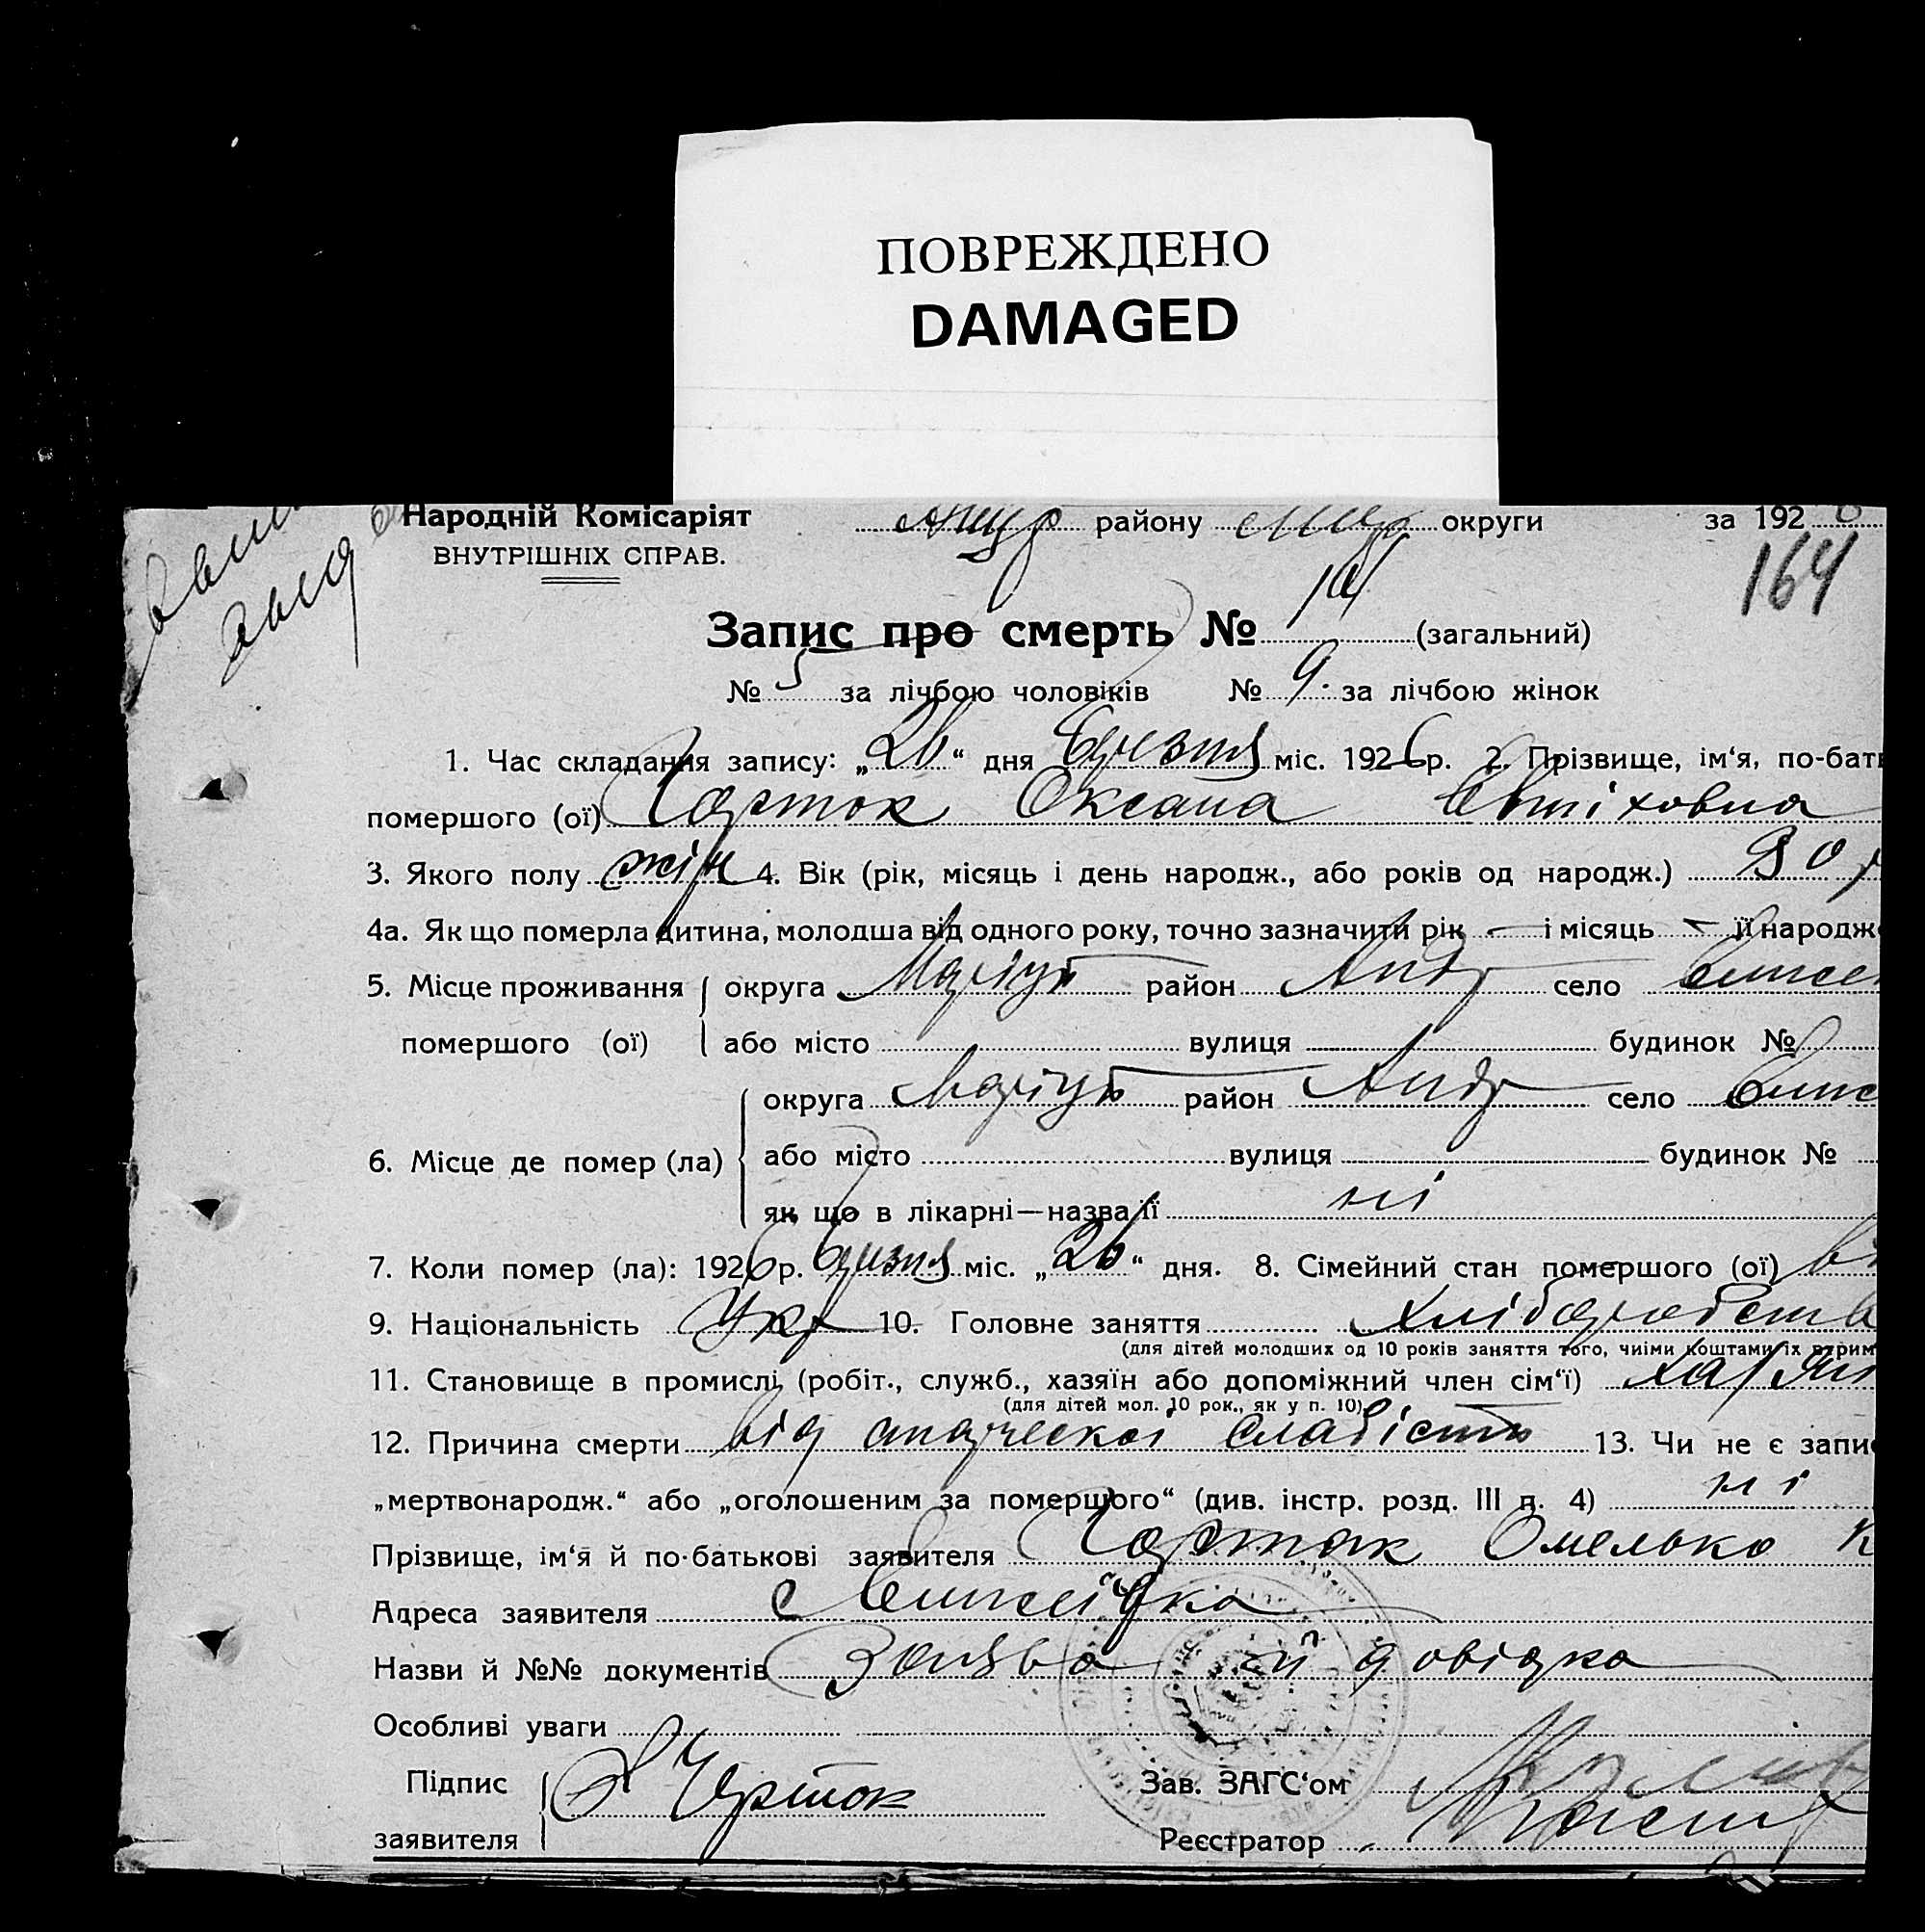 ПОВРЕЖДЕНО
DAMAGED
Народній Комісаріят району округи за 192
ВНУТРІШНІХ СПРАВ.
164
Запис про смерть № 14 (загальний)
№ 5 за лічбою чоловіків № 9. за лічбою жінок
1. Час складання запису: „26“ дня Березня міс. 1926 р. 2. Прізвище, ім‘я, по-бать
помершого (ої) Чорток Оксана Евтіховна
3. Якого полу жін 4. Вік (рік, місяць і день народж., або років од народж.)
4а. Як що померла дитина, молодша від одного року, точно зазначити рік — і місяць — її народж
5. Місце проживання округа Маріуп район Андр село
помершого (ої) або місто вулиця будинок №
округа Маріуп район Андр село
6. Місце де помер (ла) або місто вулиця будинок №
як що в лікарні—назва її ні
7. Коли помер (ла): 1926 р. Березня міс. „26“ дня. 8. Сімейний стан помершого (ої)
9. Національність Укр 10. Головне заняття Хліборобств
(для дітей молодших од 10 років заняття того, чиїми коштами їх втрим
11. Становище в промислі (робіт., служб., хазяїн або допоміжний член сім‘ї)
(для дітей мол. 10 рок., як у п. 10)
12. Причина смерти від старческоі слабість 13. Чи не є запис
„мертвонародж.“ або „оголошеним за помершого“ (див. інстр. розд. III п. 4) ні
Прізвище, ім‘я й по-батькові заявителя Чорток Омелько К
Адреса заявителя с
Назви й №№ документів Заява й довідка
Особливі уваги
Підпис Зав. ЗАГС‘ом
Чорток
заявителя Реєстратор